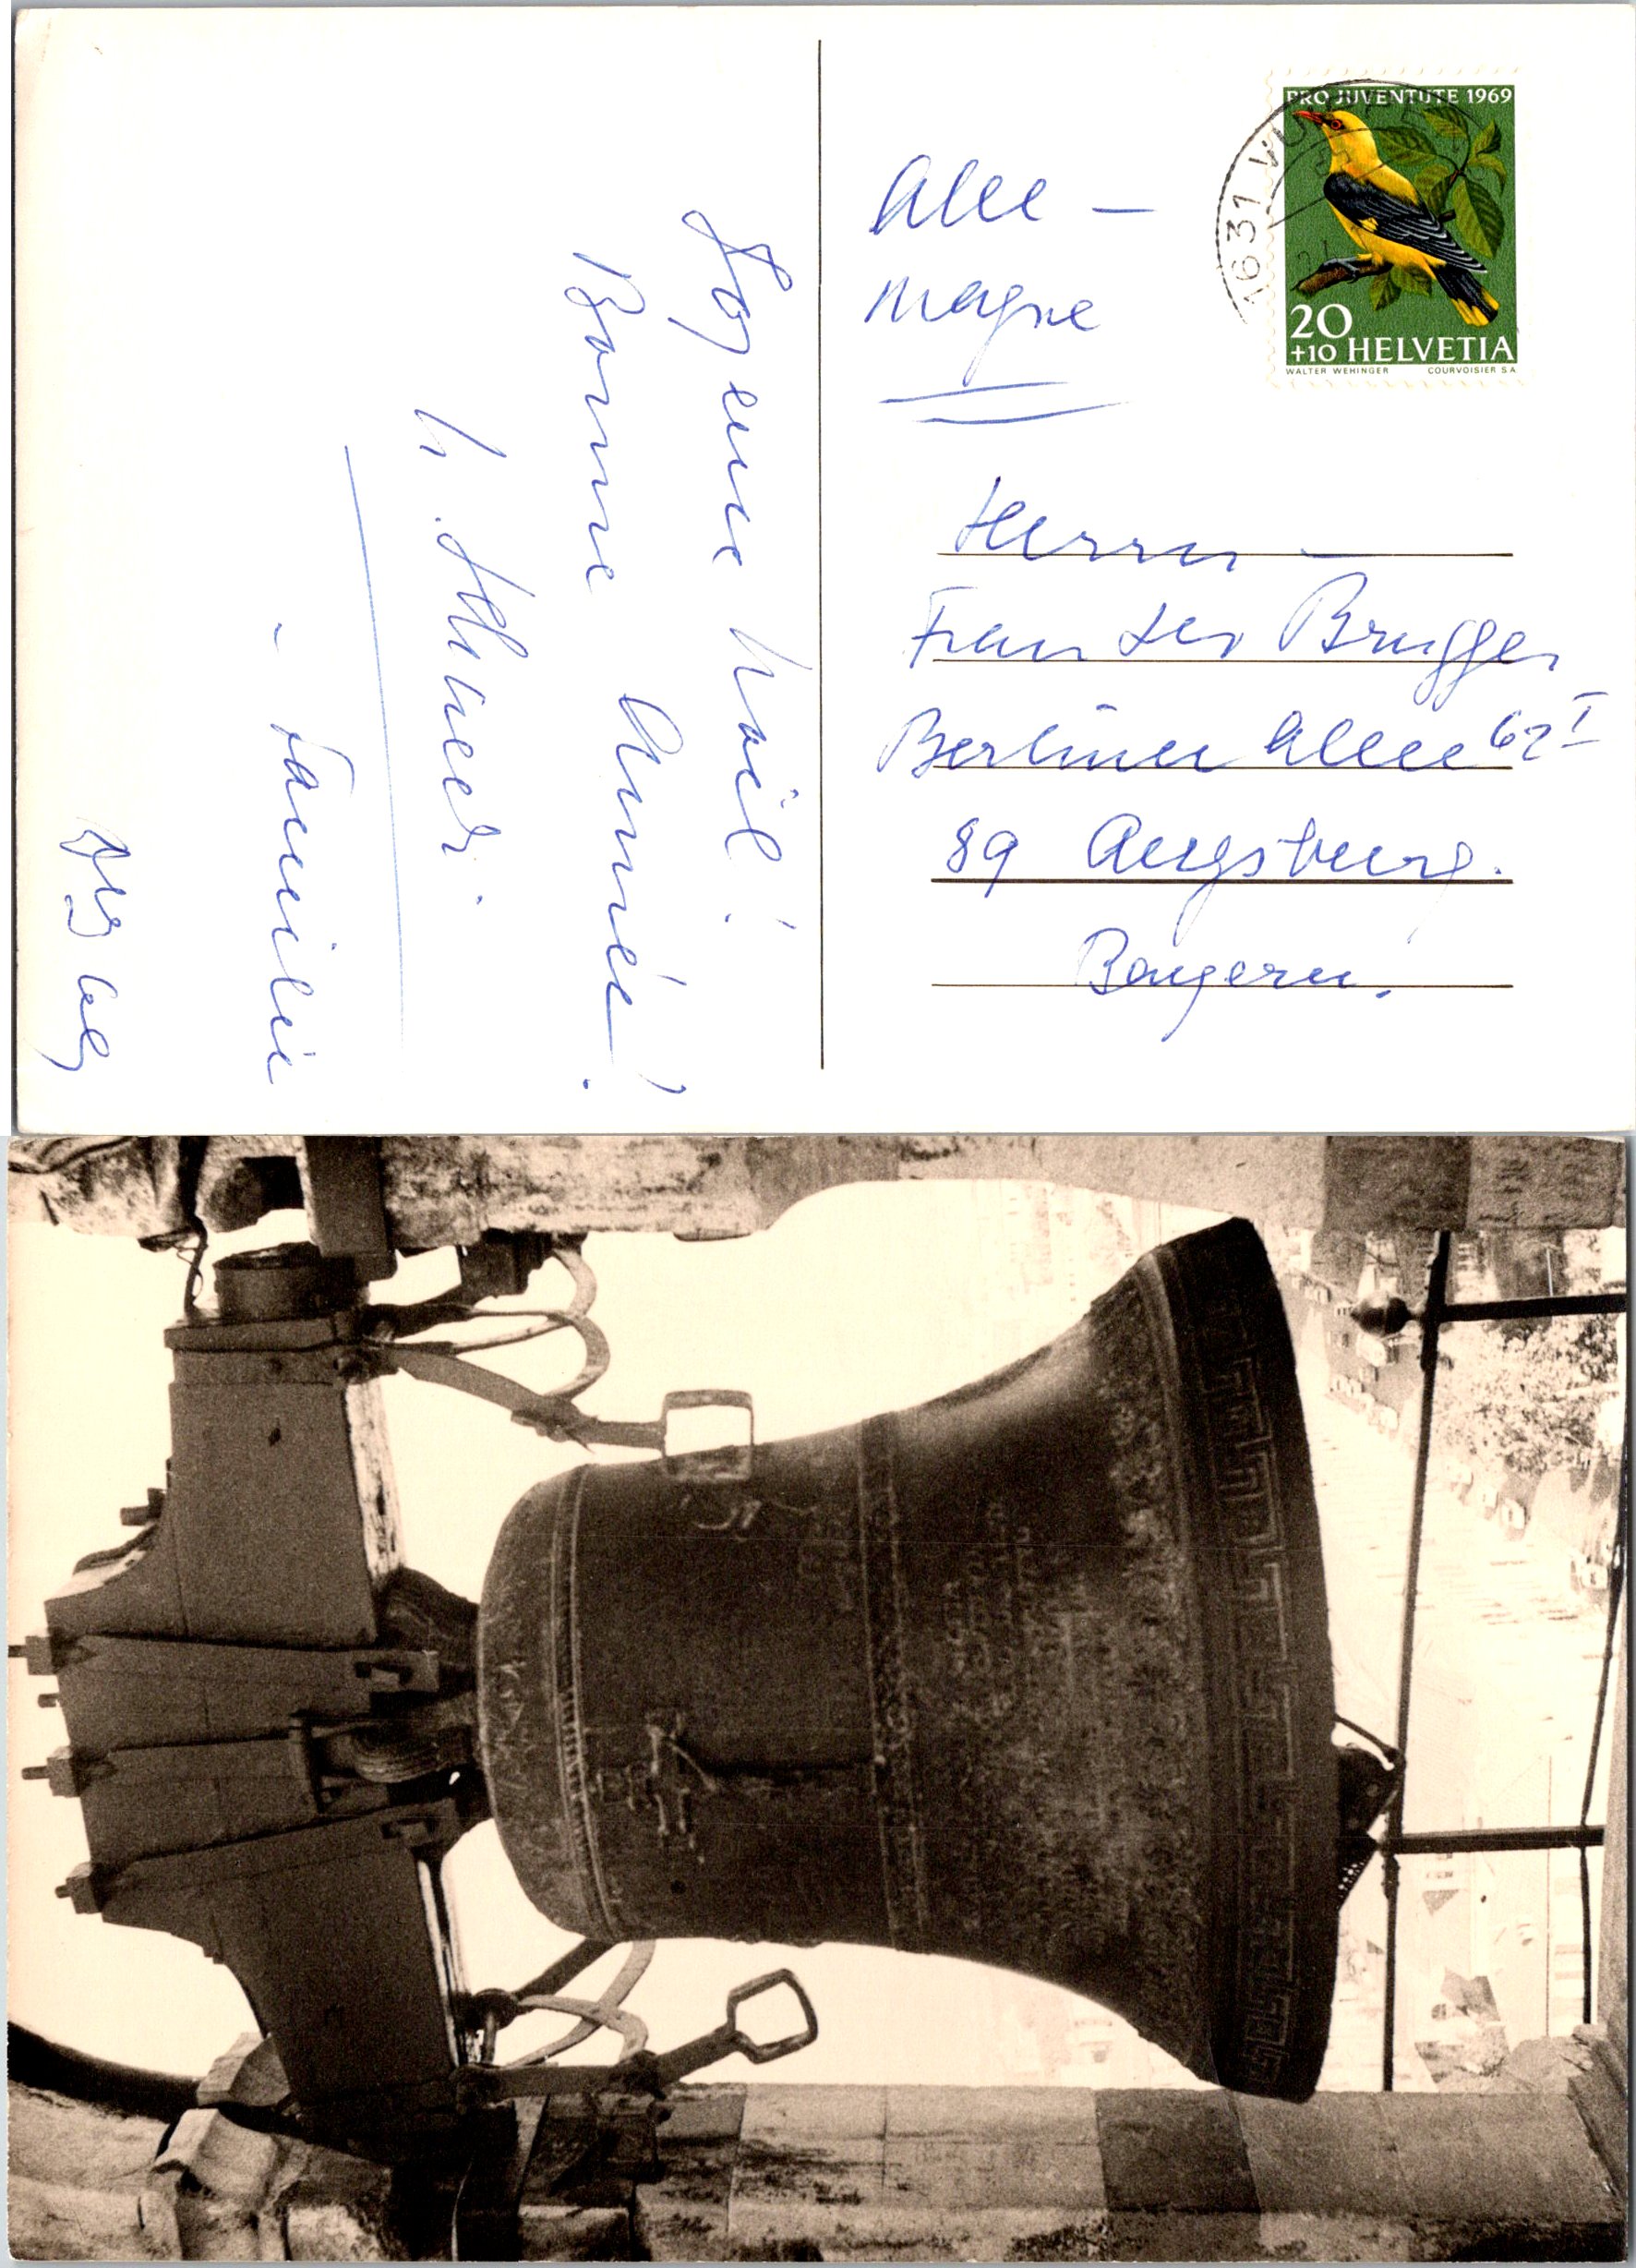 PRO JUVENTUTE 1969
20
+10 HELVETIA
WALTER WEHINGER COURVOISIER SA
1631 VU
Alle-
magne
Herrn -
Brugger
Berliner Allee 62 I
89 Augsburg.
Bayern.
Joyeux Noël!
Bonne Année!
Familie